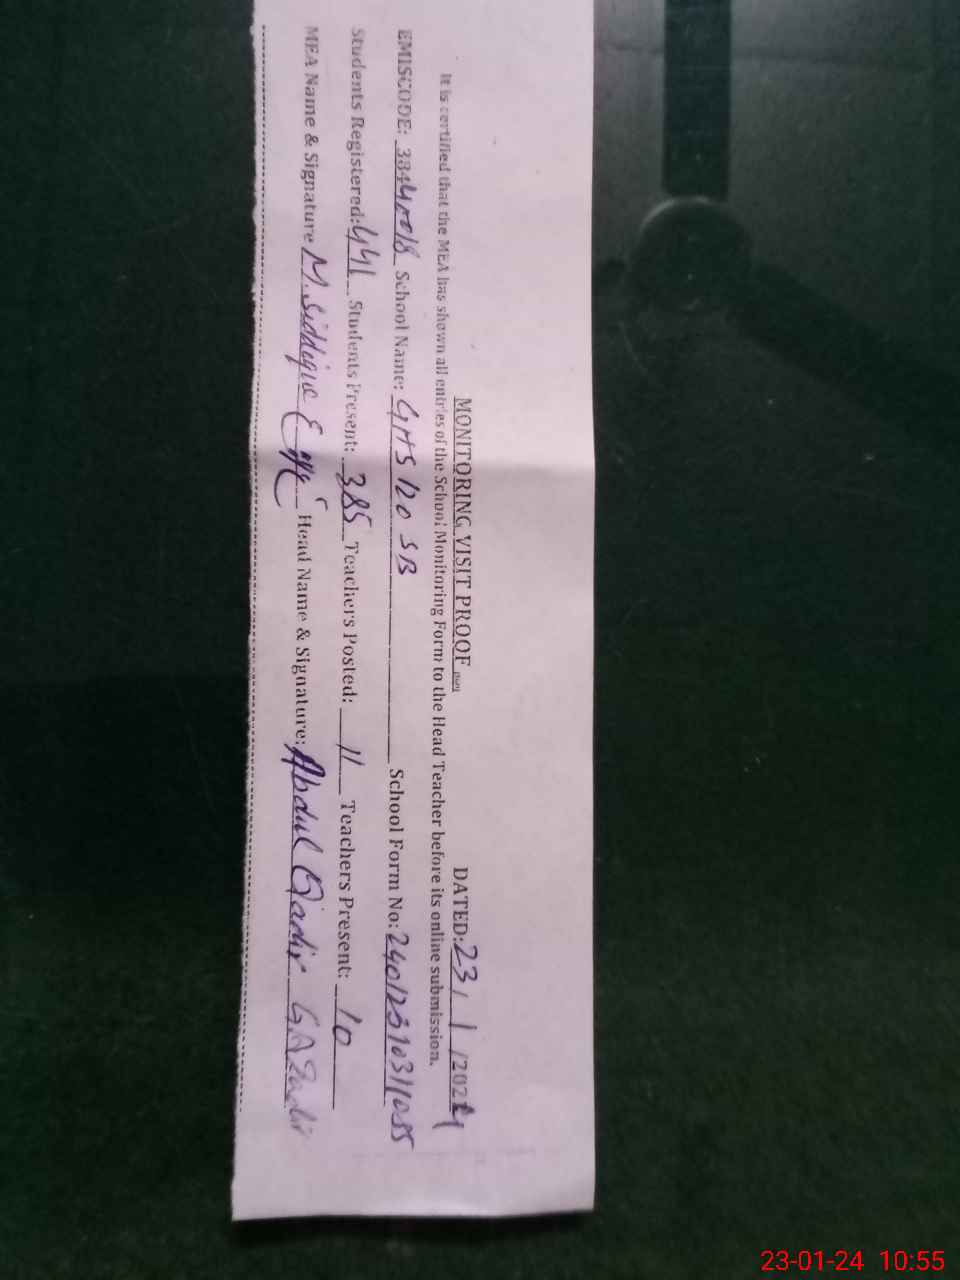 MONITORING VISIT PROOF DATED: 23/1/2024
It is certified that the MEA has shown all entries of the School Monitoring Form to the Head Teacher before its online submission.
EMISCODE: School Name: GHS 120 SB School Form No:
Students Registered: 441 Students Present: 385 Teachers Posted: 11 Teachers Present: 10
MEA Name & Signature M. Siddique Head Name & Signature: Abdul Qadir
23-01-24 10:55